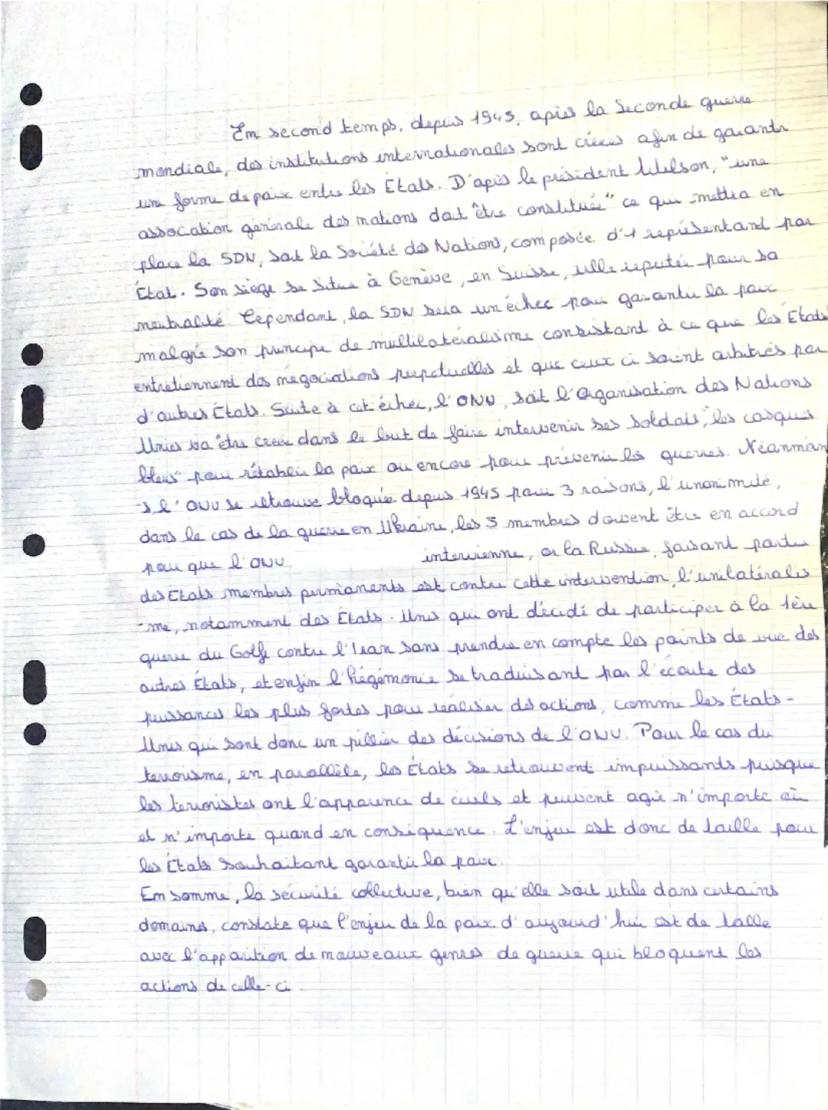 Em second temps, depuis 1945, après la Seconde guerre
mondiale, des institutions internationales sont créées afin de garantir
une forme de paix entre les États. D'après le président Wilson, "une
assocation générale des nations doit être constituée" ce qui mettra en
place la SDN, soit la Société des Nations, composée d'1 représentant par
État. Son siège se situe à Genève, en Suisse, ville réputée pour sa
neutralité. Cependant, la SDN sera un échec pour garantir la paix
malgré son principe de multilatéralisme consistant à ce que les États
entretiennent des négociations perpetuelles et que ceux ci soient arbitrés par
d'autres États. Suite à cet échec, l'ONU, soit l'Organisation des Nations
Unies va être créée dans le but de faire intervenir ses soldats, "les casques
bleus" pour rétablir la paix ou encore pour prévenir les guerres. Néanmoin
-s l'ONU se retrouve bloquée depuis 1945 pour 3 raisons, l'unanimité,
dans le cas de la guerre en Ukraine, les 5 membres doivent être en accord
pour que l'ONU intervienne, or la Russie, faisant partie
des États membres permanents est contre cette intervention, l'unilatéralis
-me, notamment des États-Unis qui ont décidé de participer à la 1ère
guerre du Golfe contre l'Iran sans prendre en compte les points de vue des
autres États, et enfin l'hégémonie se traduisant par l'écoute des
puissances les plus fortes pour réaliser des actions, comme les États-
Unis qui sont donc un pillier des décisions de l'ONU. Pour le cas du
terrorisme, en parallèle, les États se retrouvent impuissants puisque
les terroristes ont l'apparence de civils et peuvent agir n'importe où
et n'importe quand en conséquence. L'enjeu est donc de taille pour
les États souhaitant garantir la paix.
Em somme, la sécurité collective, bien qu'elle soit utile dans certains
domaines, constate que l'enjeu de la paix d'aujourd'hui est de talle
avec l'apparition de nouveaux genres de guerre qui bloquent les
actions de celle-ci.